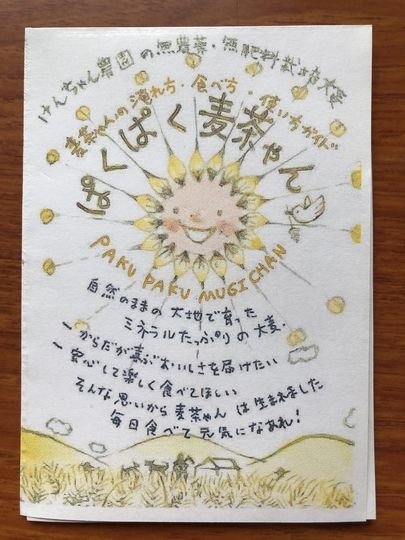 けんちゃん農園の無農薬・無肥料栽培大麦
麦茶やんの淹れ方・食べ方・使い方ガイド
ぱくぱく麦茶やん
PAKU PAKU MUGICHAN
自然のままの大地で育った
ミネラルたっぷりの大麦。
ーからだが喜ぶおいしさを届けたい
ー安心して楽しく食べてほしい
そんな思いから麦茶やんは生まれました
毎日食べて元気になあれ!